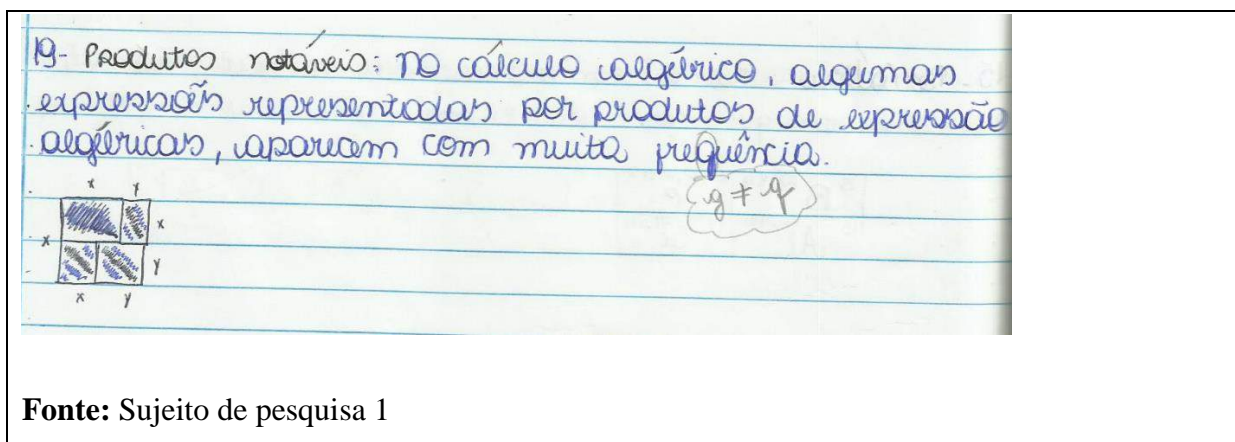 19- Produtos notáveis: no cálculo algébrico, algumas
expressoẽs representadas por produtos de expressão
algébricas, aparecem com muita freguência.
g ≠ q
x y
x
x
y
x y
Fonte: Sujeito de pesquisa 1